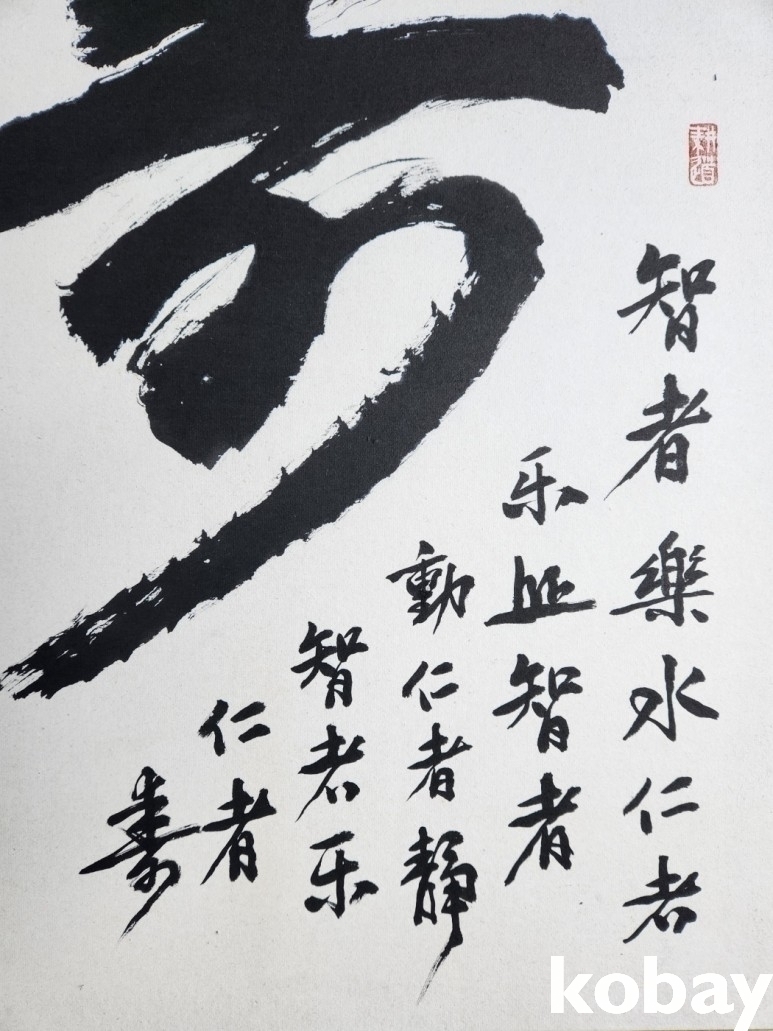 耕道
智者樂水仁者
乐山智者
動仁者靜
智者乐
仁者
壽
kobay